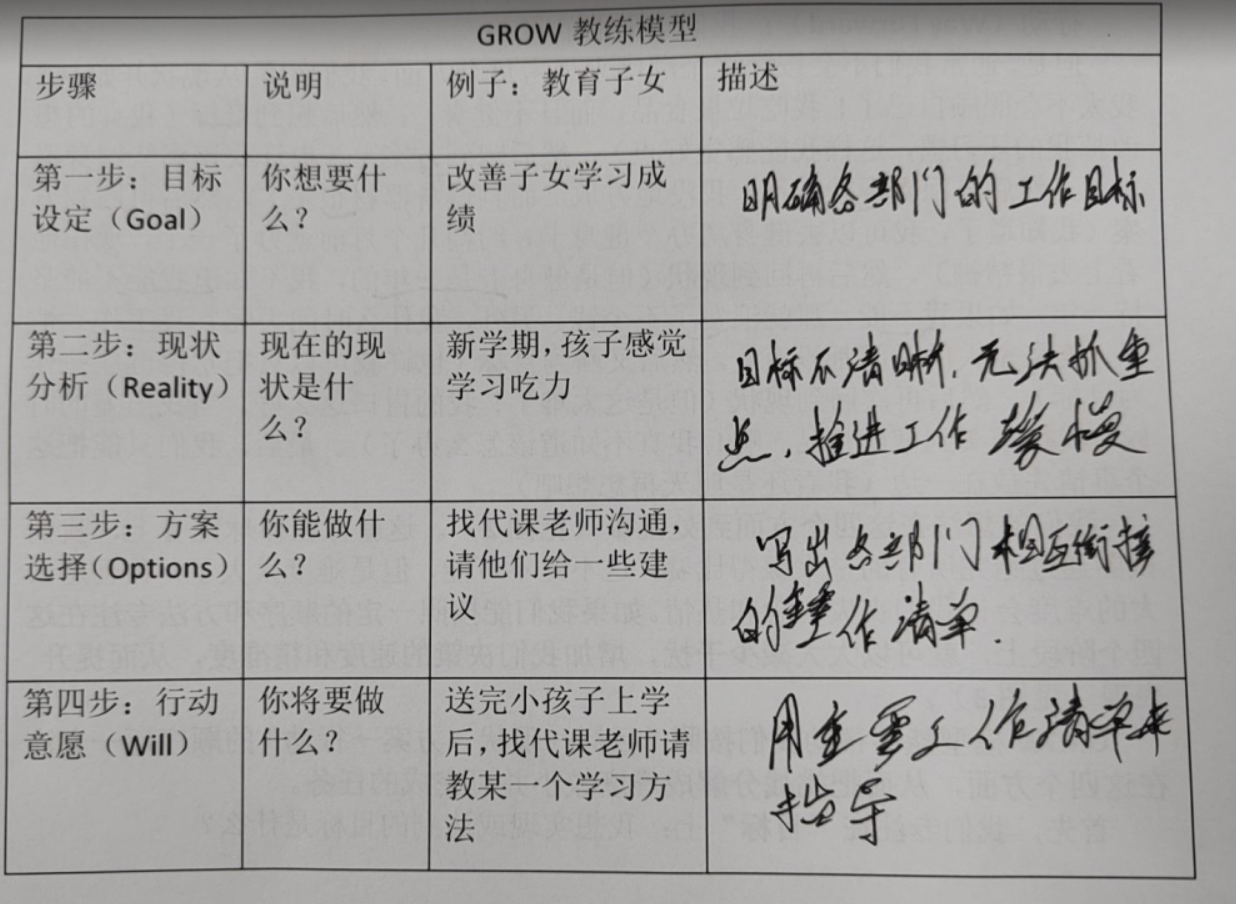 GROW 教练模型
步骤
说明
例子：教育子女
描述
第一步：目标
设定（Goal）
你想要什
么？
改善子女学习成
绩
明确各部门的工作目标
第二步：现状
分析（Reality）
现在的现
状是什
么？
新学期，孩子感觉
学习吃力
目标不清晰，无法抓重
点，推进工作缓慢
第三步：方案
选择（Options）
你能做什
么？
找代课老师沟通，
请他们给一些建
议
写出各部门相互衔接
的 作清单.
第四步：行动
意愿（Will）
你将要做
什么？
送完小孩子上学
后，找代课老师请
教某一个学习方
法
用重要工作清单来
指导